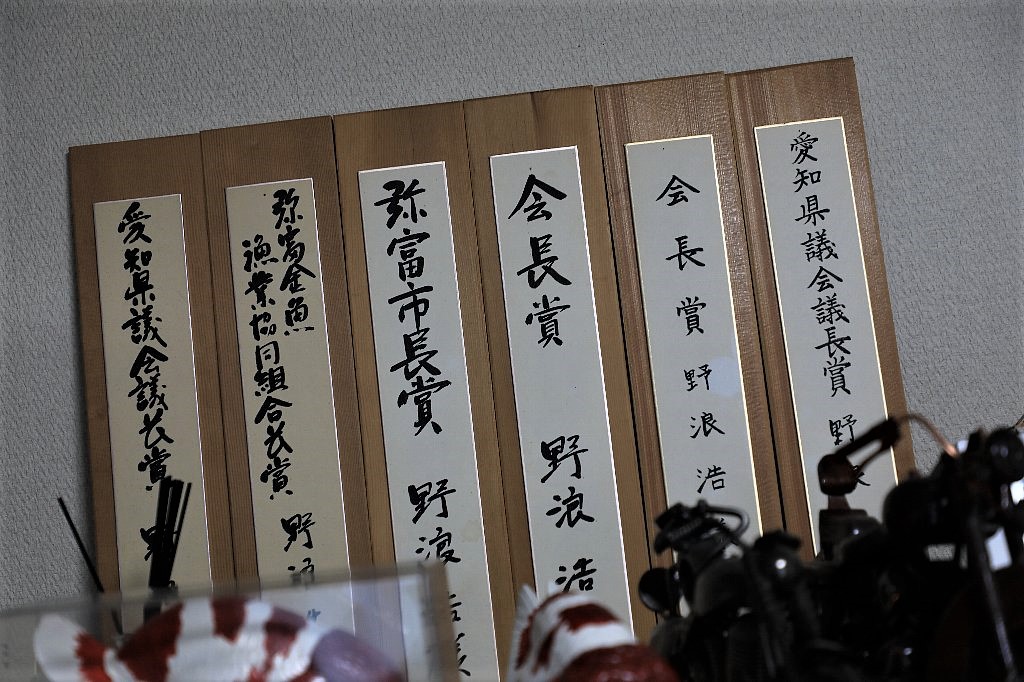 愛知県議会議長賞 野
会長賞 野浪浩
会長賞 野浪浩
弥富市長賞 野浪浩様
弥富金魚
漁業協同組合長賞 野浪
愛知県議会議長賞 野